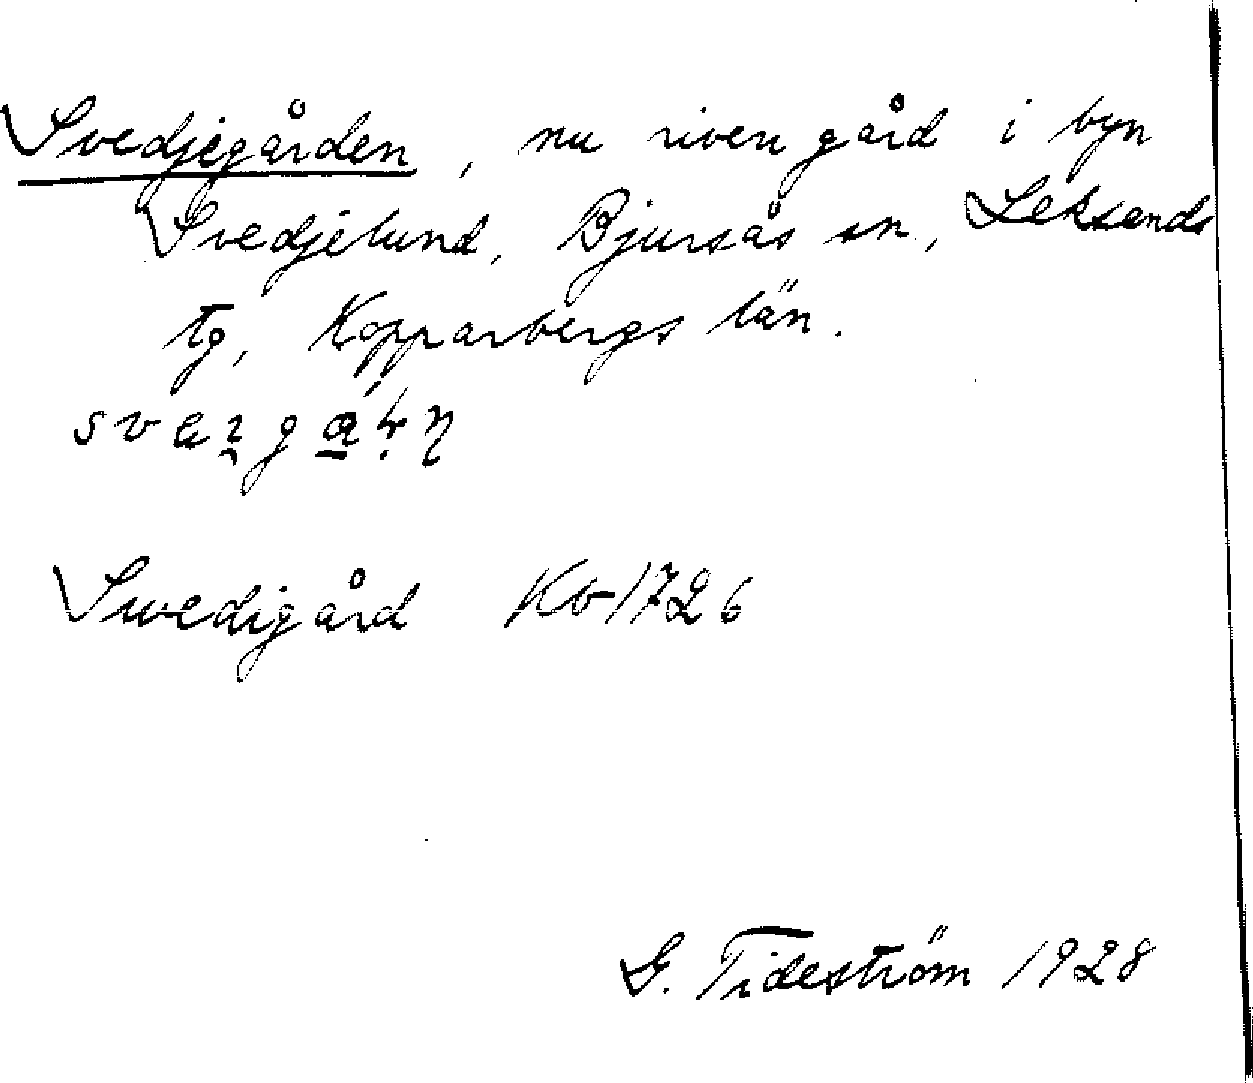 Svedjegården, nu riven gård i byn
Svedjelund, Bjursås sn, Leksands
tg, Kopparbergs län.
Swedigård Kb 1726
G. Tideström 1928